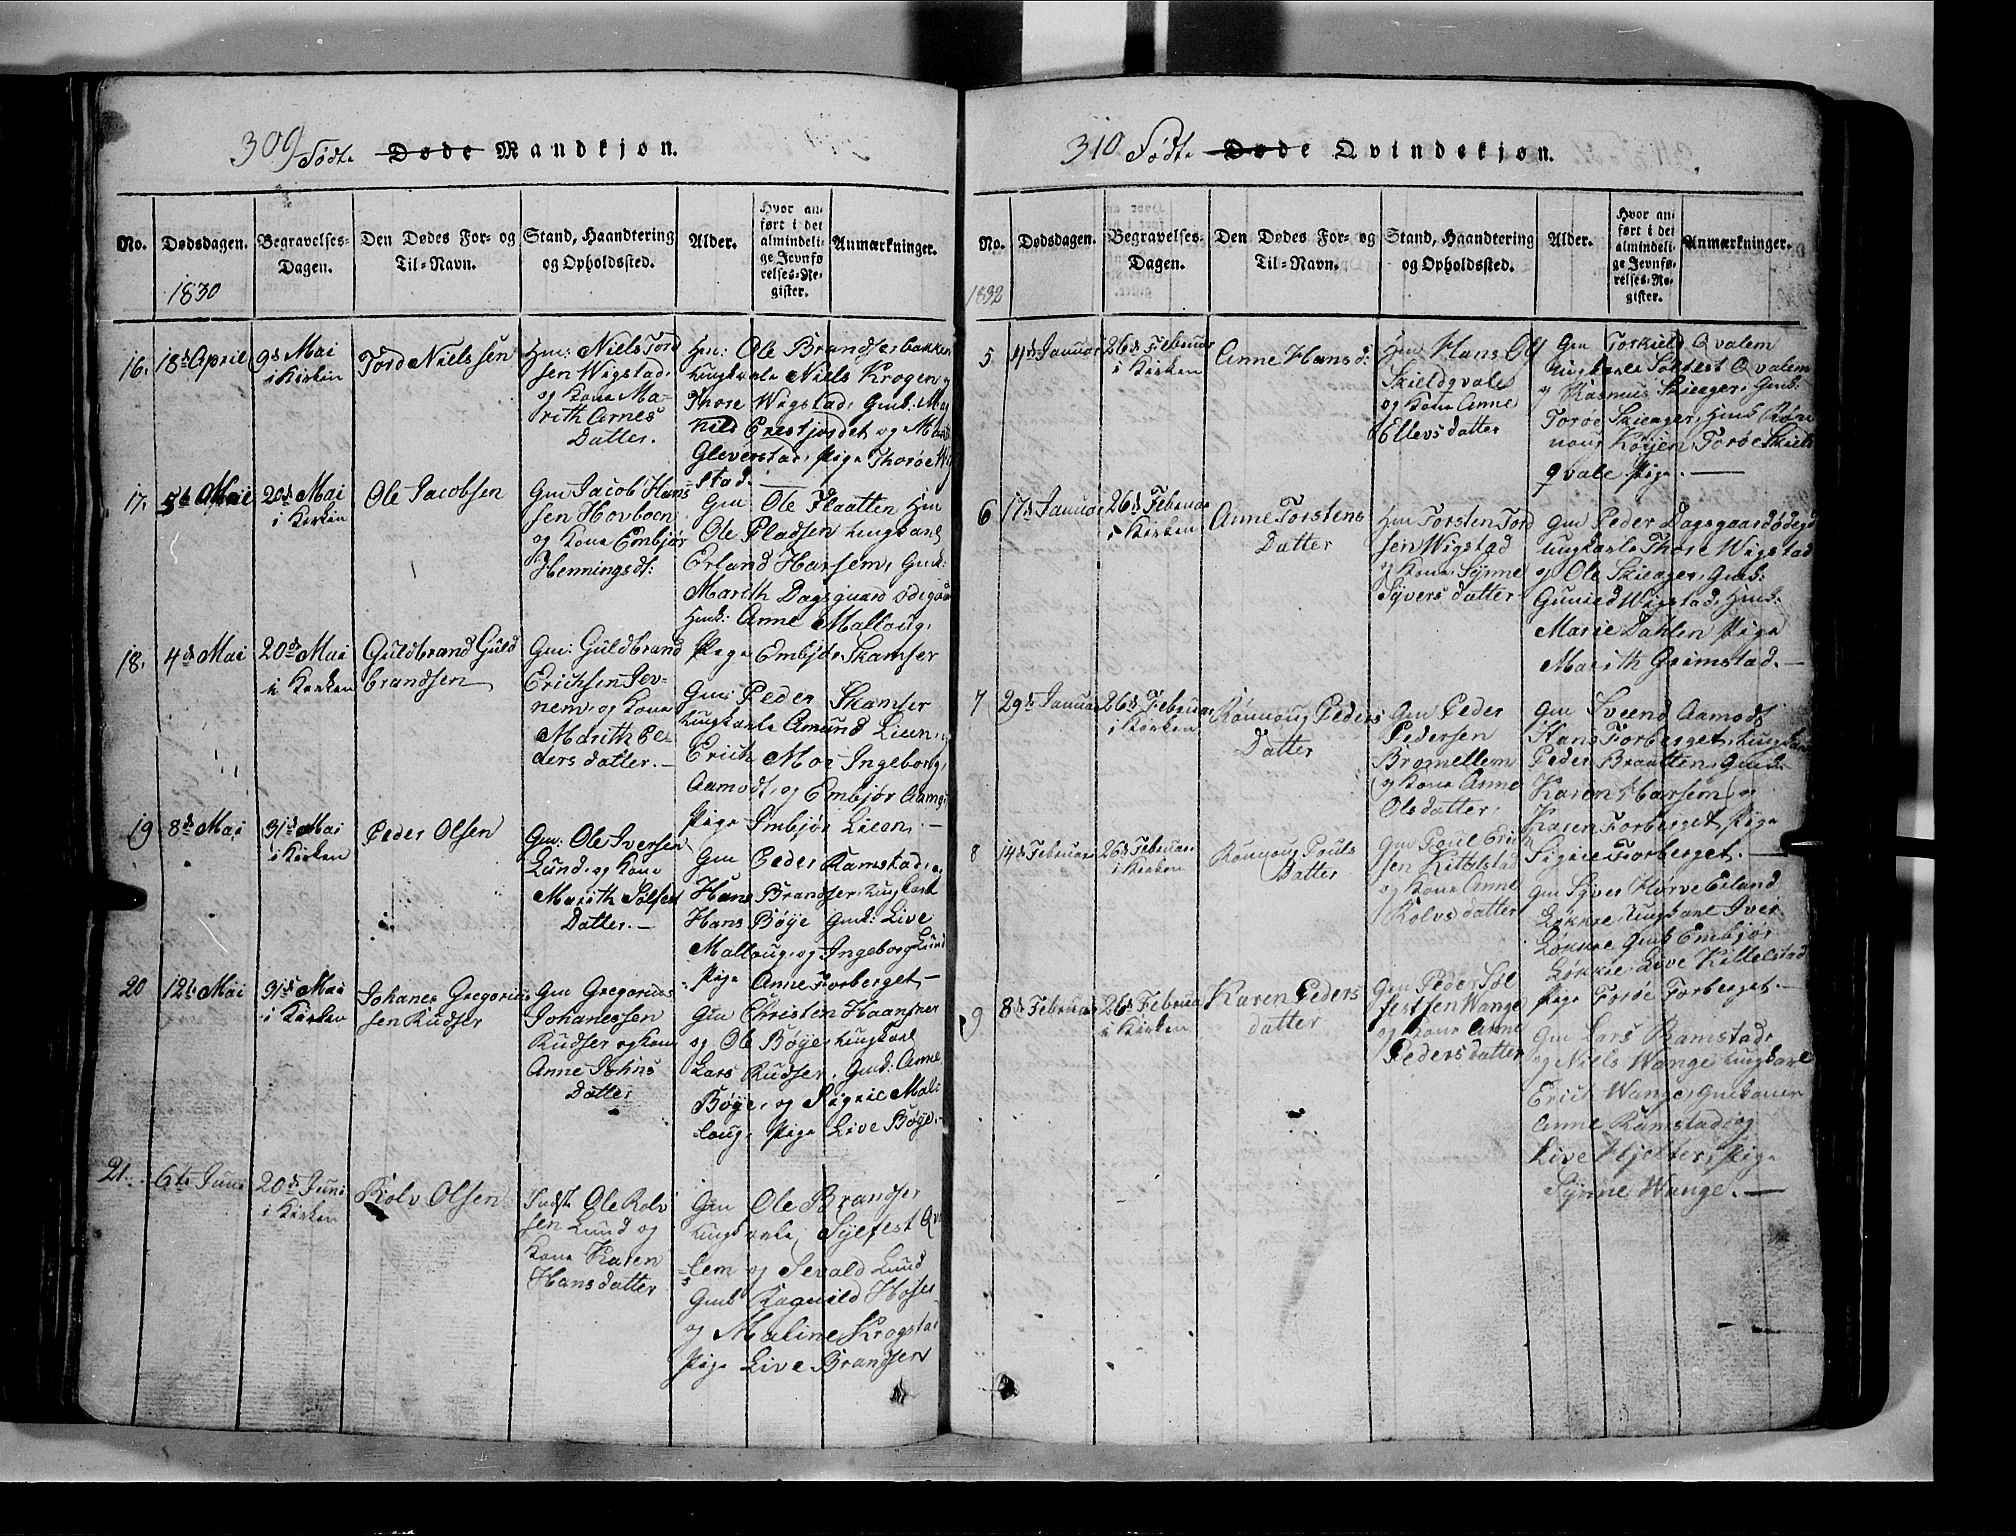 309 Födte Døde Mandkjøn.
No.
Dødsdagen.
Begravelses-
Dagen.
Den Dødes For- og
Til-Navn.
Stand, Haandtering
og Opholdssted.
Alder.
Hvor an-
ført i det
almindeli-
ge Jevnfø-
relses-Re-
gister.
Anmærkninger.
1830
16.
18de April
9de Mai
i Kirken
Tord Nielssen
Hm: Niels Tord
sen Wigstad,
og Kone Ma-
rith Arnes
Datter.
Hm: Ole Brandserbakken
Ungkarle Niels Krogen
Thore Wigstad, Gmk:
Prestjordet og
Gleverstad, Pige Thoroe Wig
stad.
17.
5te Maii
20de Mai
i Kirken
Ole Jacobsen
Gm Jacob Hans
sen Hovboen
og Kone Embjør
Henningsdt:
Gm Ole Flaatten Hm
Ole Pladsen Ungkarl
Erland Harsem, Gmk:
Marith Dagsgaard ødegaar
Hmk: Anne Malloug,
Pige Embjør Skamser
18.
4de Mai
20de Mai
i Kirken
Guldbrand Guld
brandsen
Gm: Guldbrand
Erichsen Jev-
nem, og Kone
Marith Pe-
ders datter.
Gm: Peder Skamser
Ungkarle Amund Lien,
Erich Moe Ingeborg,
Aamodt, og Embjør Aamo
Pige Imbjør Lien.
19
8de Mai
31de Mai
i Kirken
Peder Olsen
Gm: Ole Iversen
Lund, og Kone
Marith Sølfest
Datter.
Gm Peder Ramstad, og
Hans Brandser, Ungkarl
Hans Bøye Gmk: Live
Malloug, og Ingeborg Lund
Pige Anne Forberget
20
12te Mai
31de Mai
i Kirken
Johanes Gregorius
sen Rudser
Gm Gregorius
Johanessen
Rudser og Kone
Anne Johns
Datter
Gm Christen Haansner
og Ole Bøye, Ungkarl
Lars Rudser, Gmk: Anne
Bøye, og Sigrie Mal-
loug, Pige Live Bøye.
21.
6te Juni
20de Juni
i Kirken
Rolv Olsen
Indst Ole Rolv
sen Lund og
Kone Karen
Hansdatter
Gm Ole Brandser
Ungkarle Sylfest Qva
lem og Sevald Lund
Gmk Ragnild Hoser
og Maline Krogstad
Pige Live Brandsen
310 Födte Døde Qvindekjøn.
No.
Dødsdagen.
Begravelses-
Dagen.
Den Dødes For- og
Til-Navn.
Stand, Haandtering
og Opholdssted.
Alder.
Hvor an-
ført i det
almindeli-
ge Jevnfø-
relses-Re-
gister.
Anmærkninger.
1832
5
4de Januar
26de Februar
i Kirken
Anne Hansd:
Hm Hans Ols
Skieldqvale
og Kone Anne
Ellevsdatter
Gm Torkield Qvalem
Ungkarle Solfest Qvalem
og Rasmus Skieager, Gmk:
Toroe Skieager, Hmk Røn
noug Køyen, Toroe Skield
qvale Pige.
6
17de Januar
26de Februar
i Kirken
Anne Torstens
Datter
Hm Torsten Tord
sen Wigstad
og Kone Synne
Syvers datter
Gm Peder Dagsgaardødegd
Ungkarle Thore Wigstad
og Ole Skieager, Gmk:
Gunild Wigstad, Hmk:
Marie Dahlen Pige
Marith Grimstad.
7
29de Januar
26de Februar
i Kirken
Rønnoug Peders
Datter
Gm Peder
Pedersen
Bromellem
og Kone Anne
Olsdatter,
Gm Svend Aamodt
Hans Forberget, Ungkarl
Peder Braatten, Gmk:
Karen Harsem, og
Karen Forberget Pige
Sigrie Forberget.
8
14de Februar
26de Februar
i Kirken
Rønnoug Pouls
Datter
Gm Poul Erich
sen Kittelstad
og Kone Anne
Rolvs datter
Gm Syver Hørve Erland
Løkkre, Ungkarl Iver
Løkkre Gmk Embjør
Løkkre, Live Kittelstad
Pige Toroe Forberget.
9
8de Februar
26de Februar
i Kirken
Karen Peders
datter
Gm Peder Søl
festsen Wange
og Kone Anne
Peders datter
Gm Lars Ramstad,
og Niels Wange, Ungkarl
Erich Wange, Gmkoner
Anne Ramstad og
Live Hjelter, Pige
Synne Wange.